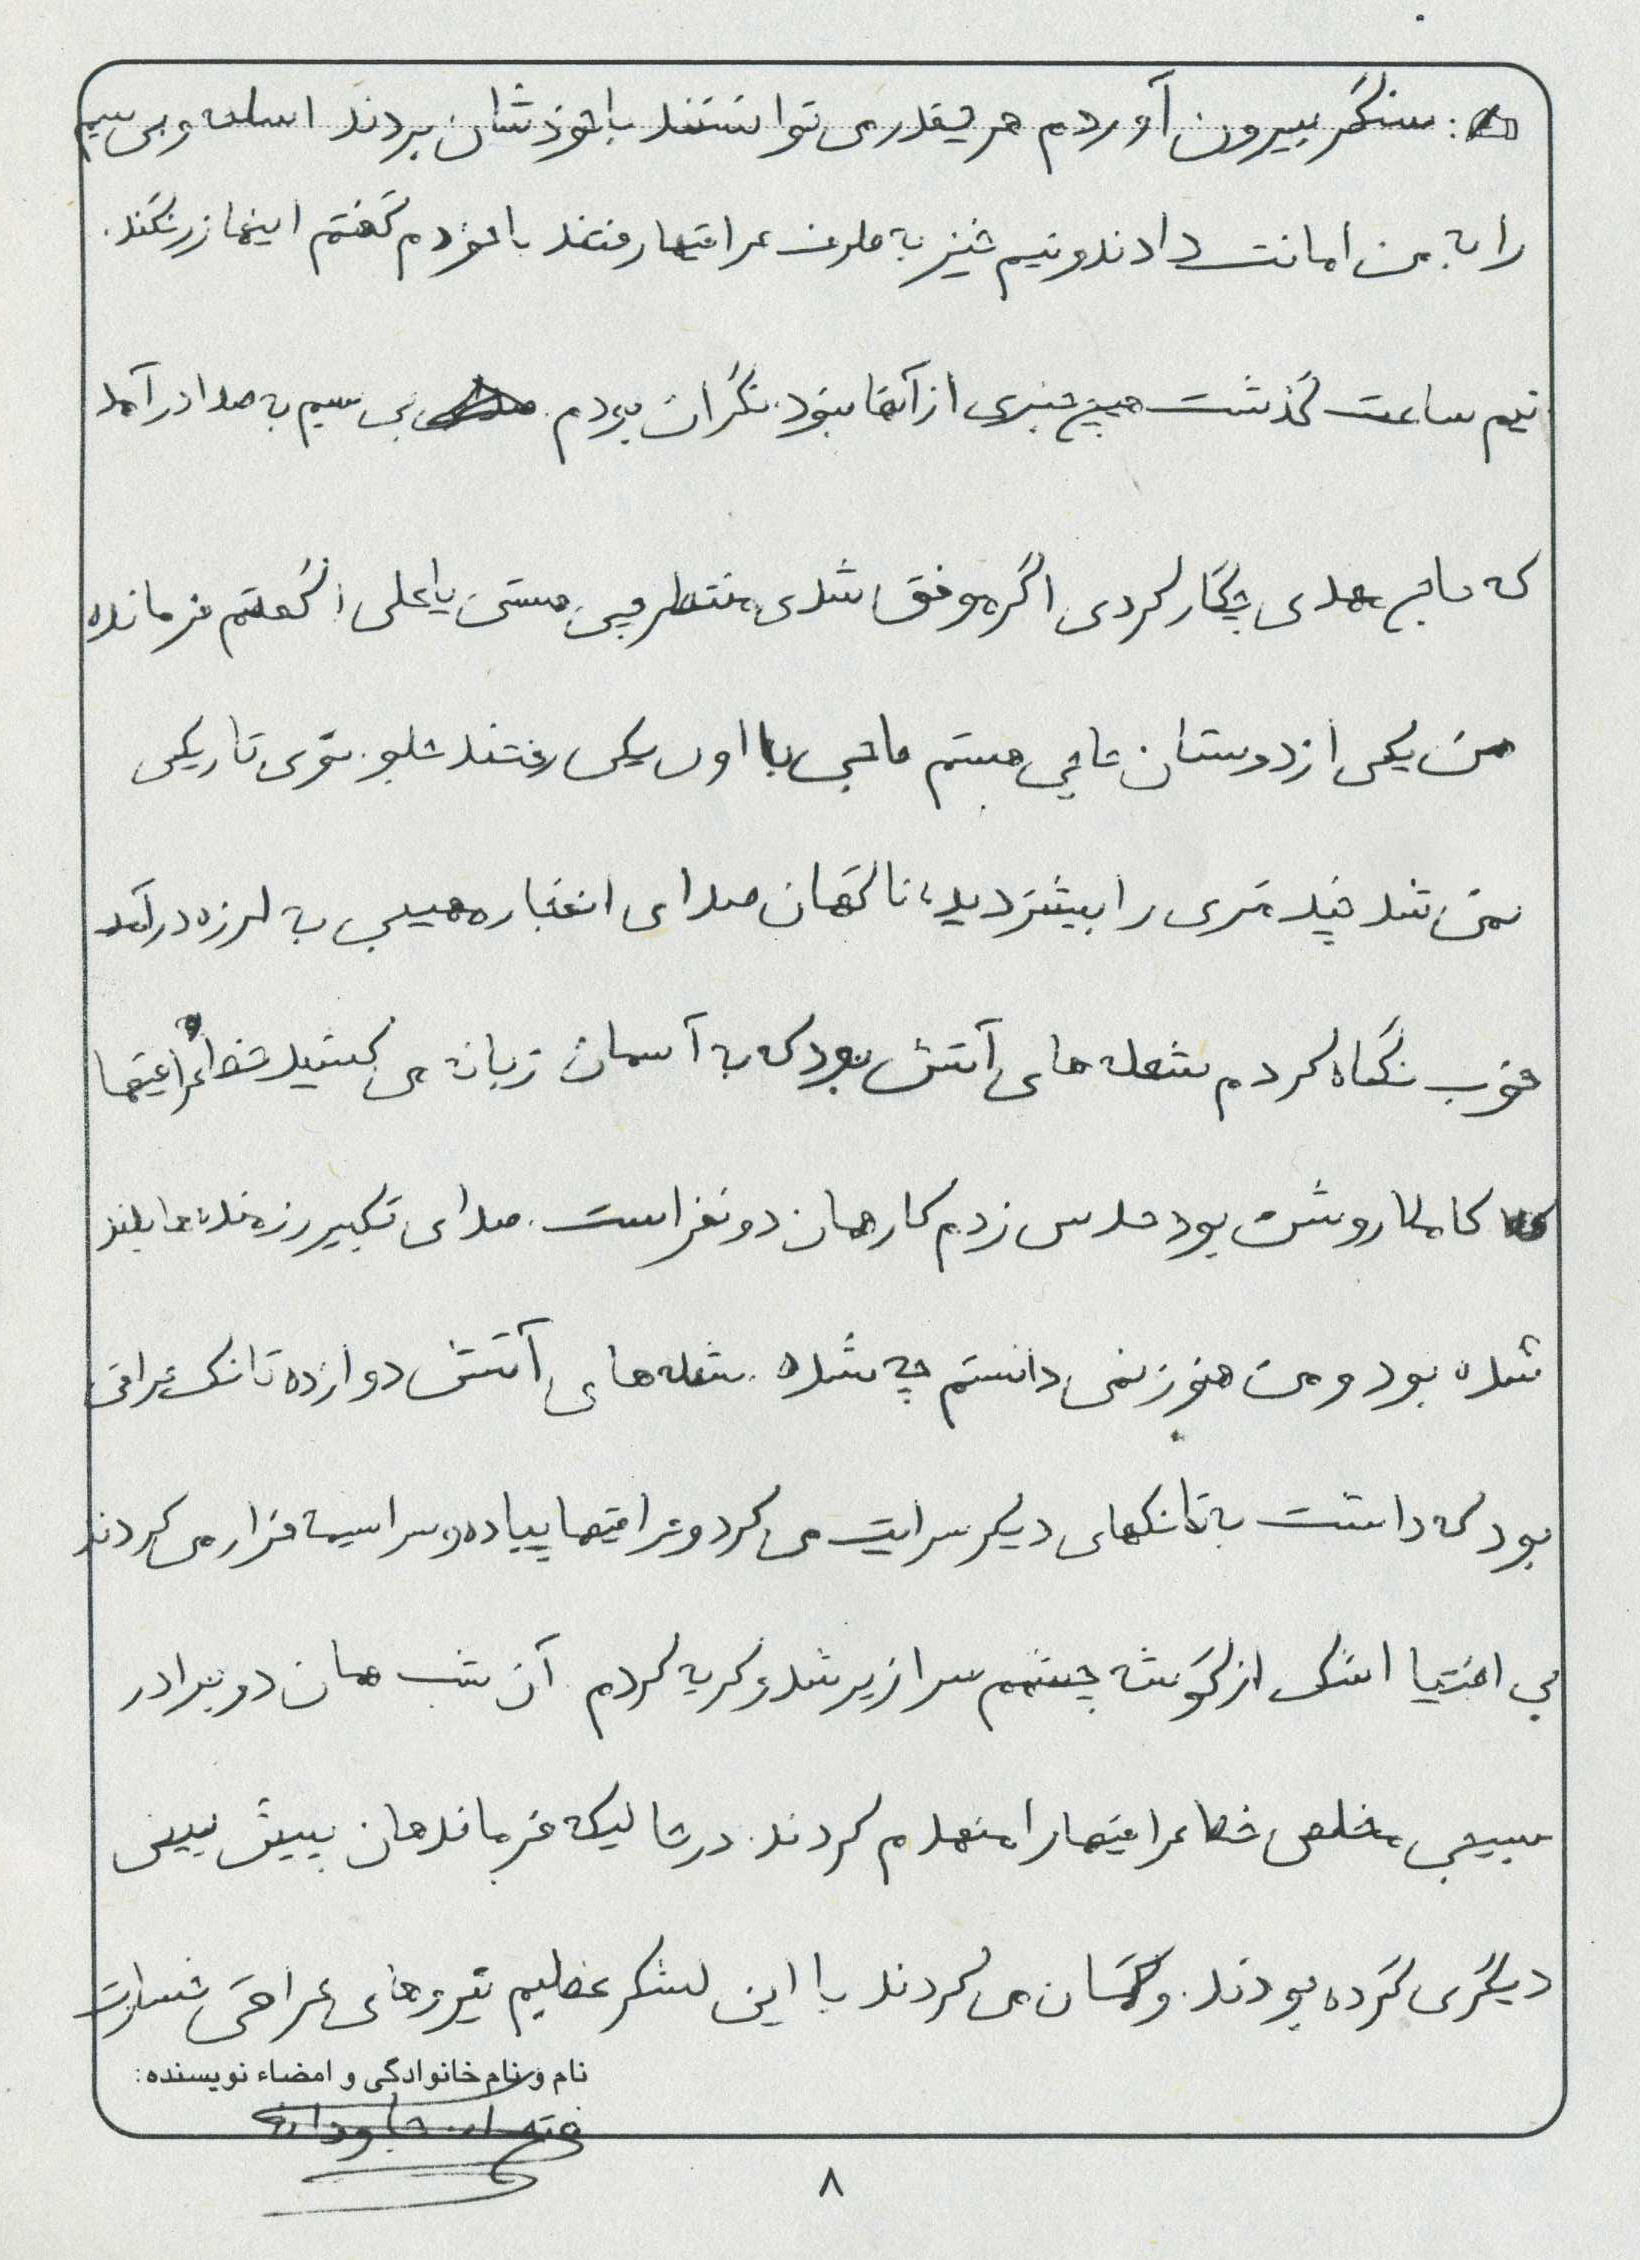 سنگر بیرون آوردم هر چقدر می توانستند با خودشان بردند اسلحه و بی سیم
را به من امانت دادند و نیم خیز به طرف عراقیها رفتند با خودم گفتم اینها زرنگند.
نیم ساعت گذشت هیچ خبری از آنها نبود. نگران بودم. بی سیم به صدا در آمد
که حاج مهدی چیکار کردی اگر موفق شدی منتظر چی هستی یا علی گفتم فرمانده
من یکی از دوستان حاجی هستم حاجی با اون یکی رفتند جلو. توی تاریکی
نمی شد چند متری را بیشتر دید، ناگهان صدای انفجار مهیبی به لرزه درآمد
خوب نگاه کردم شعله های آتش بود که به آسمان زبانه می کشید خط عراقیها
کاملا روشن بود حدس زدم کار همان دو نفر است. صدای تکبیر رزمنده ها بلند
شده بود و من هنوز نمی دانستم چه شده. شعله های آتش دوازده تانک عراقی
بود که داشت به تانکهای دیگر سرایت می کرد و عراقیها پیاده و سراسیمه فرار می کردند
بی اختیا اشک از گوشه چشمم سرازیر شد و گریه کردم. آن شب همان دو برادر
بسیجی مخلص خط عراقیها را منهدم کردند. در حالیکه فرماندهان پیش بینی
دیگری کرده بودند. و گمان می کردند با این لشکر عظیم نیروهای عراقی خسارت
نام و نام خانوادگی و امضاء نویسنده:
۸